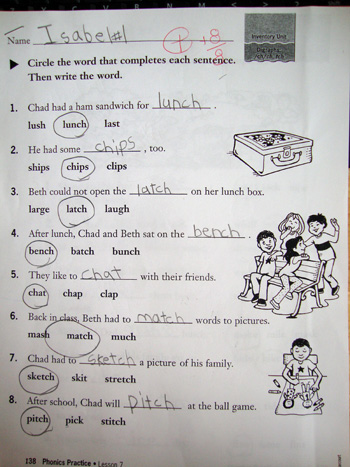 Name Isabel #1 + +8/8
Inventory Unit
Digraphs
▶ Circle the word that completes each sentence.
Then write the word.
1. Chad had a ham sandwich for lunch .
lush lunch last
2. He had some chips , too.
ships chips clips
3. Beth could not open the latch on her lunch box.
large latch laugh
4. After lunch, Chad and Beth sat on the bench .
bench batch bunch
5. They like to chat with their friends.
chat chap clap
6. Back in class, Beth had to match words to pictures.
mash match much
7. Chad had to sketch a picture of his family.
sketch skit stretch
8. After school, Chad will pitch at the ball game.
pitch pick stitch
138 Phonics Practice • Lesson 7